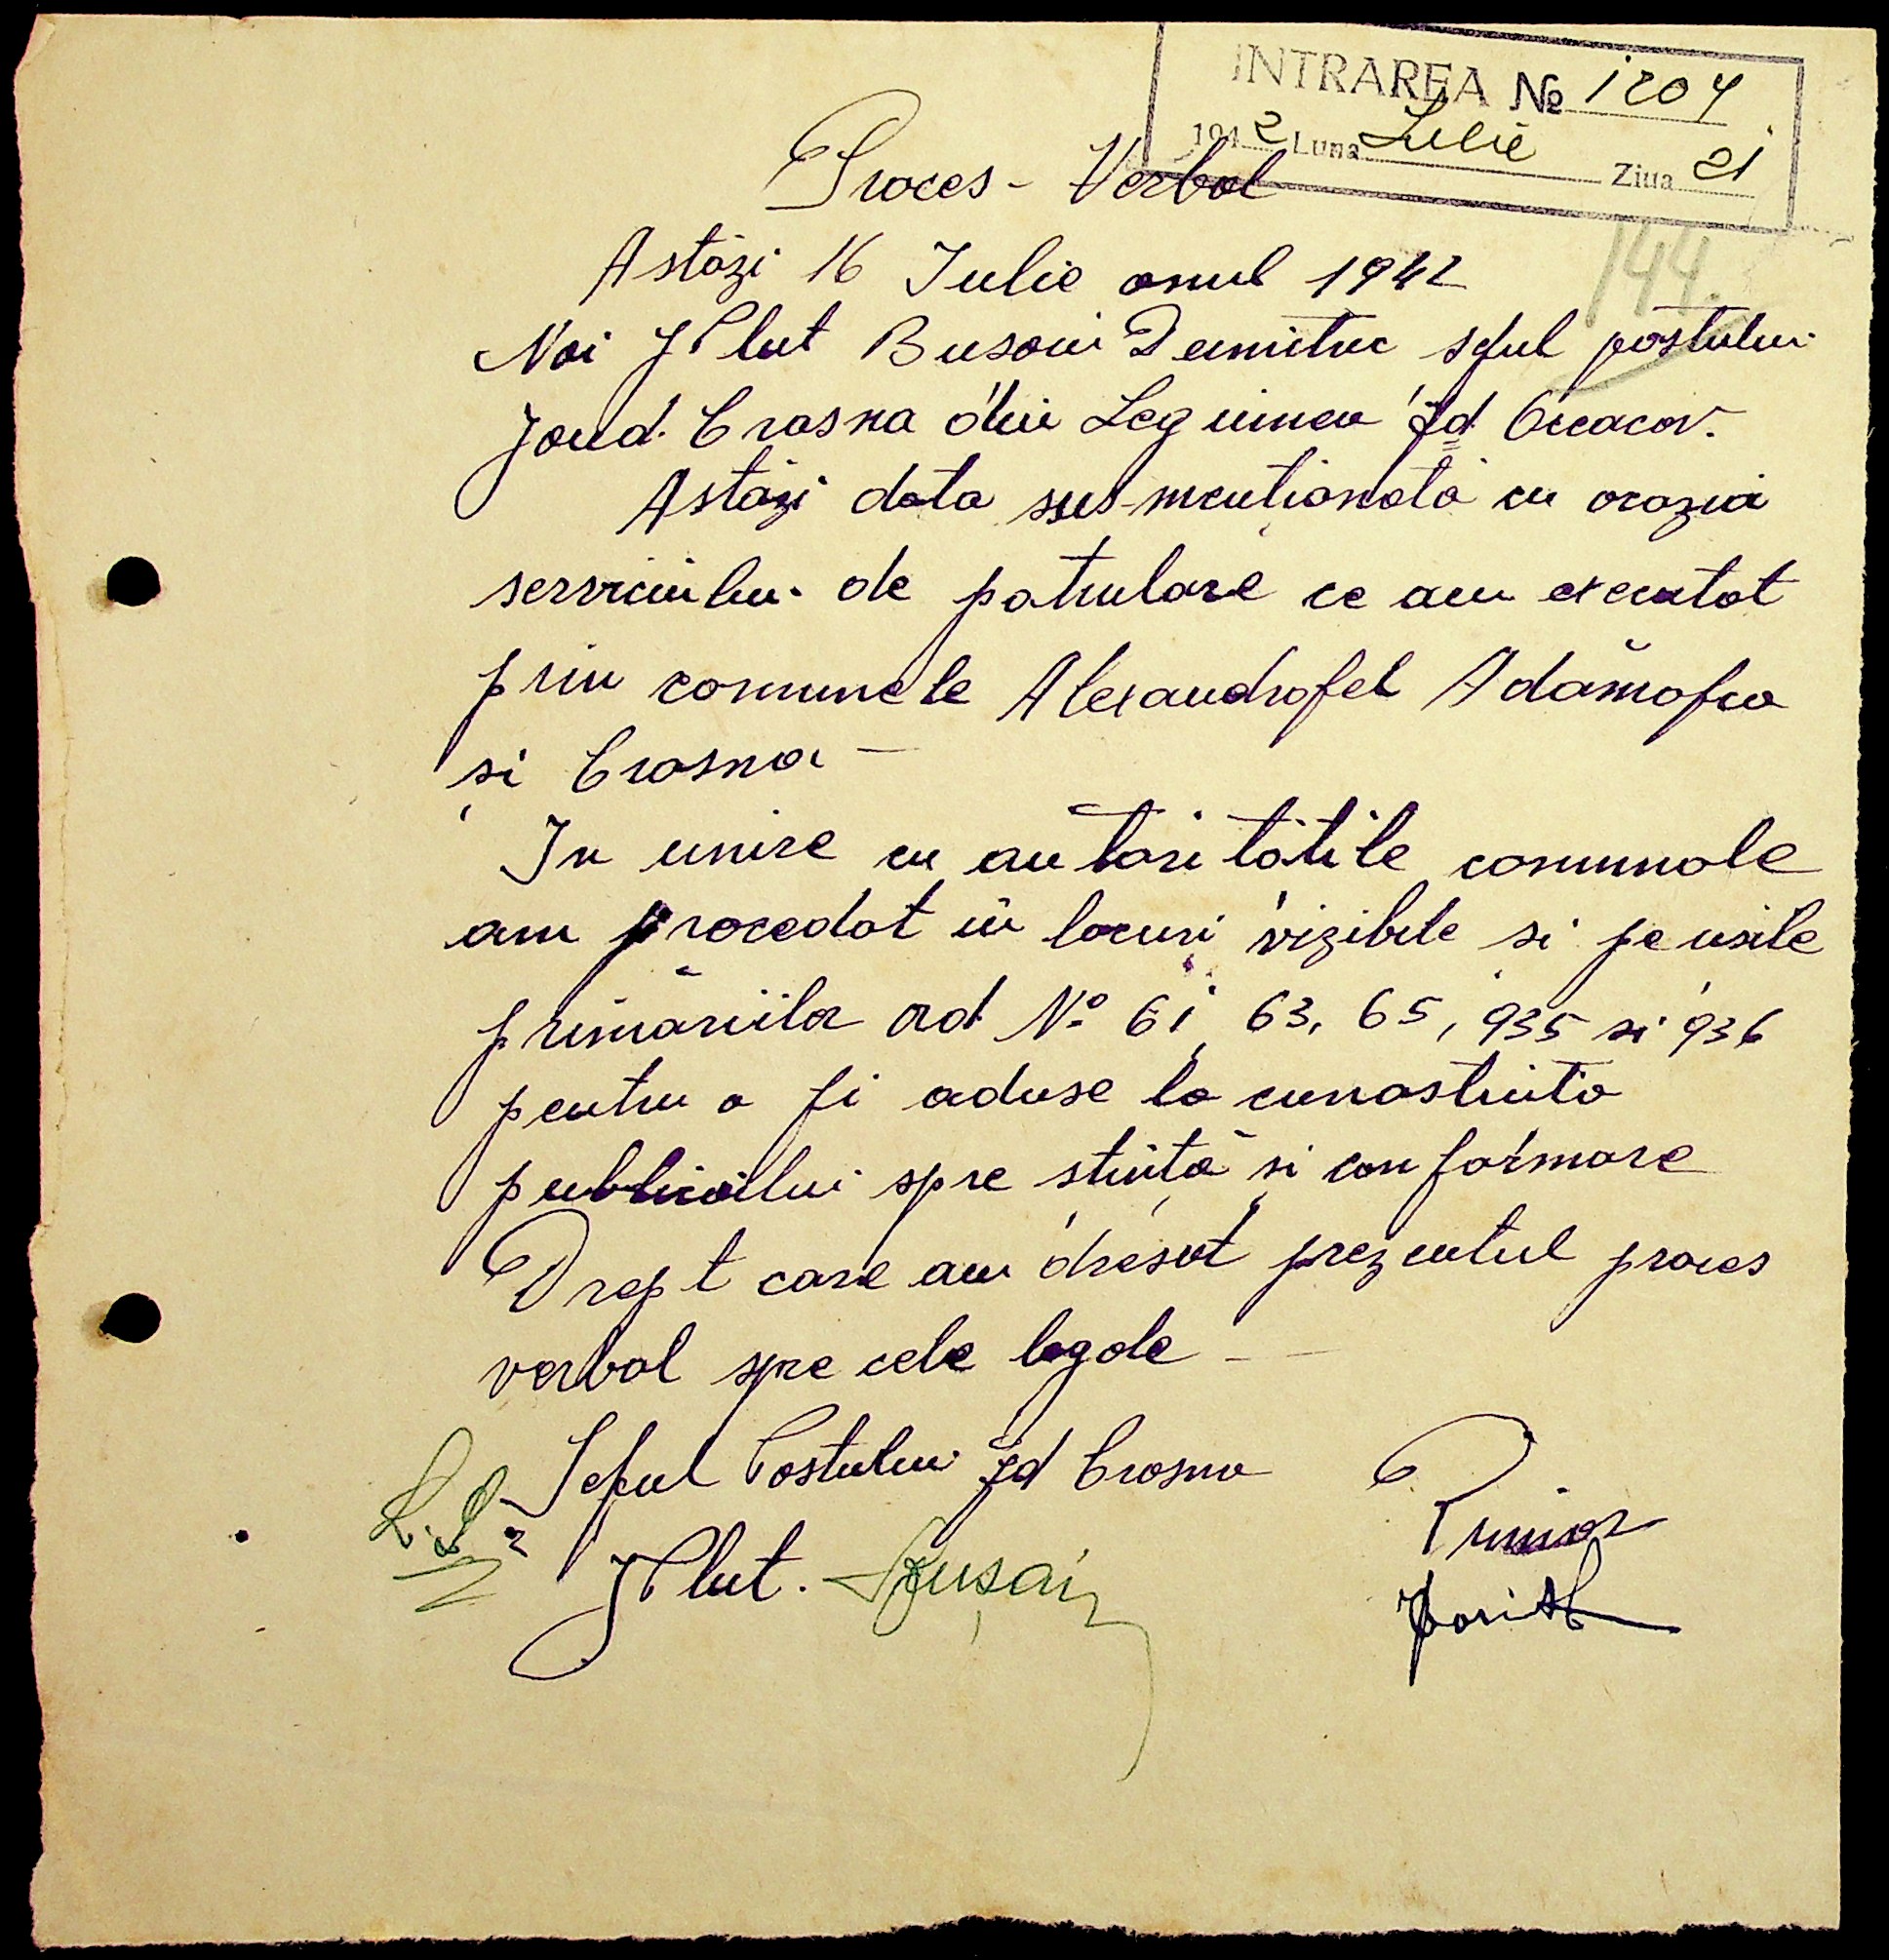 INTRAREA № 1204
1942 Luna Iulie Ziua 21
Proces-Verbal
144.
Astăzi 16 Iulie anul 1942
Noi Plut Busoui Dumitru seful postului
Jand. Crasna din Legiunea Jd Oceacov.
Astăzi data sus-mentionată cu ocazia
serviciului de patrulare ce am executat
prin comunele Alexandrofel Adămofca
și Crasna —
In unire cu autoritătile comunale
am procedat in locuri vizibile si pe usile
primăriilor ord № 61, 63, 65, 935 si 936
pentru a fi aduse la cunostinta
publicului spre stiință si conformare
Drept care am dresat prezentul proces
verbal spre cele legale - —
Seful Postului Jd Crasna
Primar
L.S.
Plut.